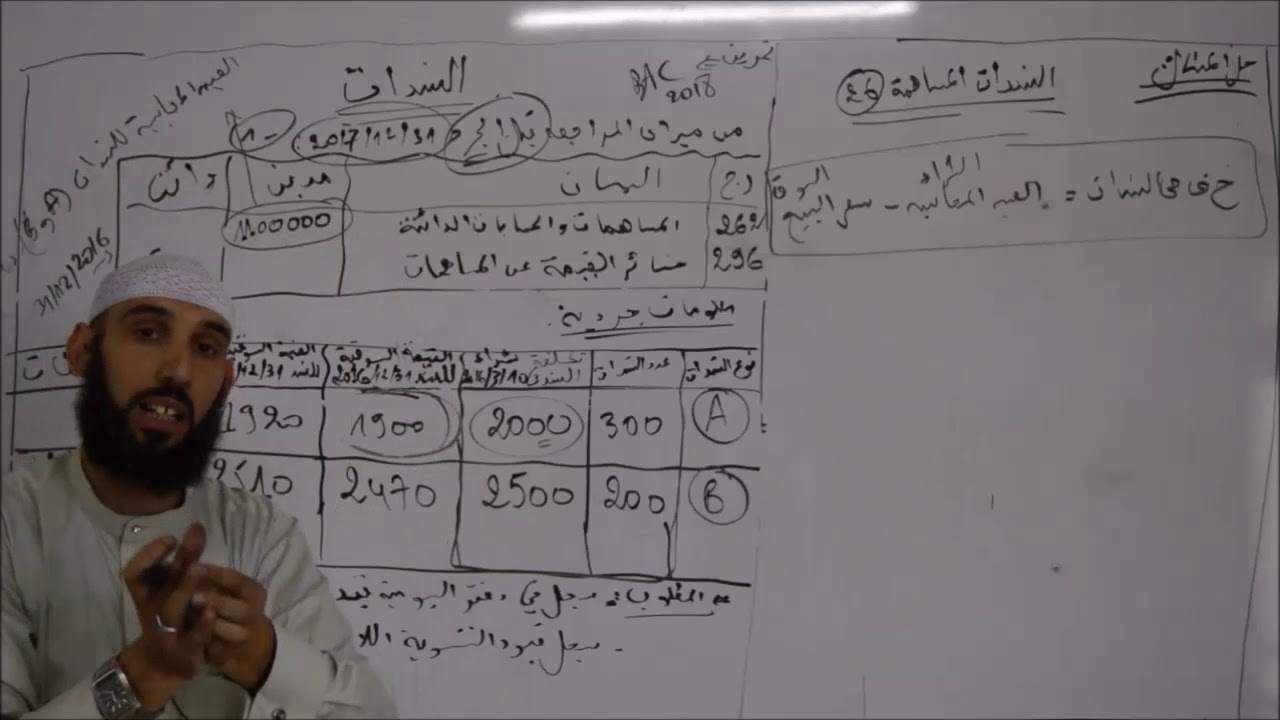 حل المثال
السندات المساهمة (26)
خ ق في السندات = القيمة المحاسبية - سعر البيع
الشراء
السوق
السندات
تمرين
BAC 2018
من ميزان المراجعة قبل الجرد 2017/12/31
ر ح البيان مدين دائن
262 المساهمات والحسابات الدائنة 1100000
296 خسائر القيمة عن المساهمات
معلومات جردية:
نوع السندات عدد السندات تكلفة شراء السند القيمة السوقية للسند 2016/12/31 القيمة السوقية للسند 12/31
A 300 2000 1900 1920
B 200 2500 2470 2510
المطلوب: سجل في دفتر اليومية قيد
- سجل قيود التسوية
القيمة المحاسبية للسندات
31/12/2016